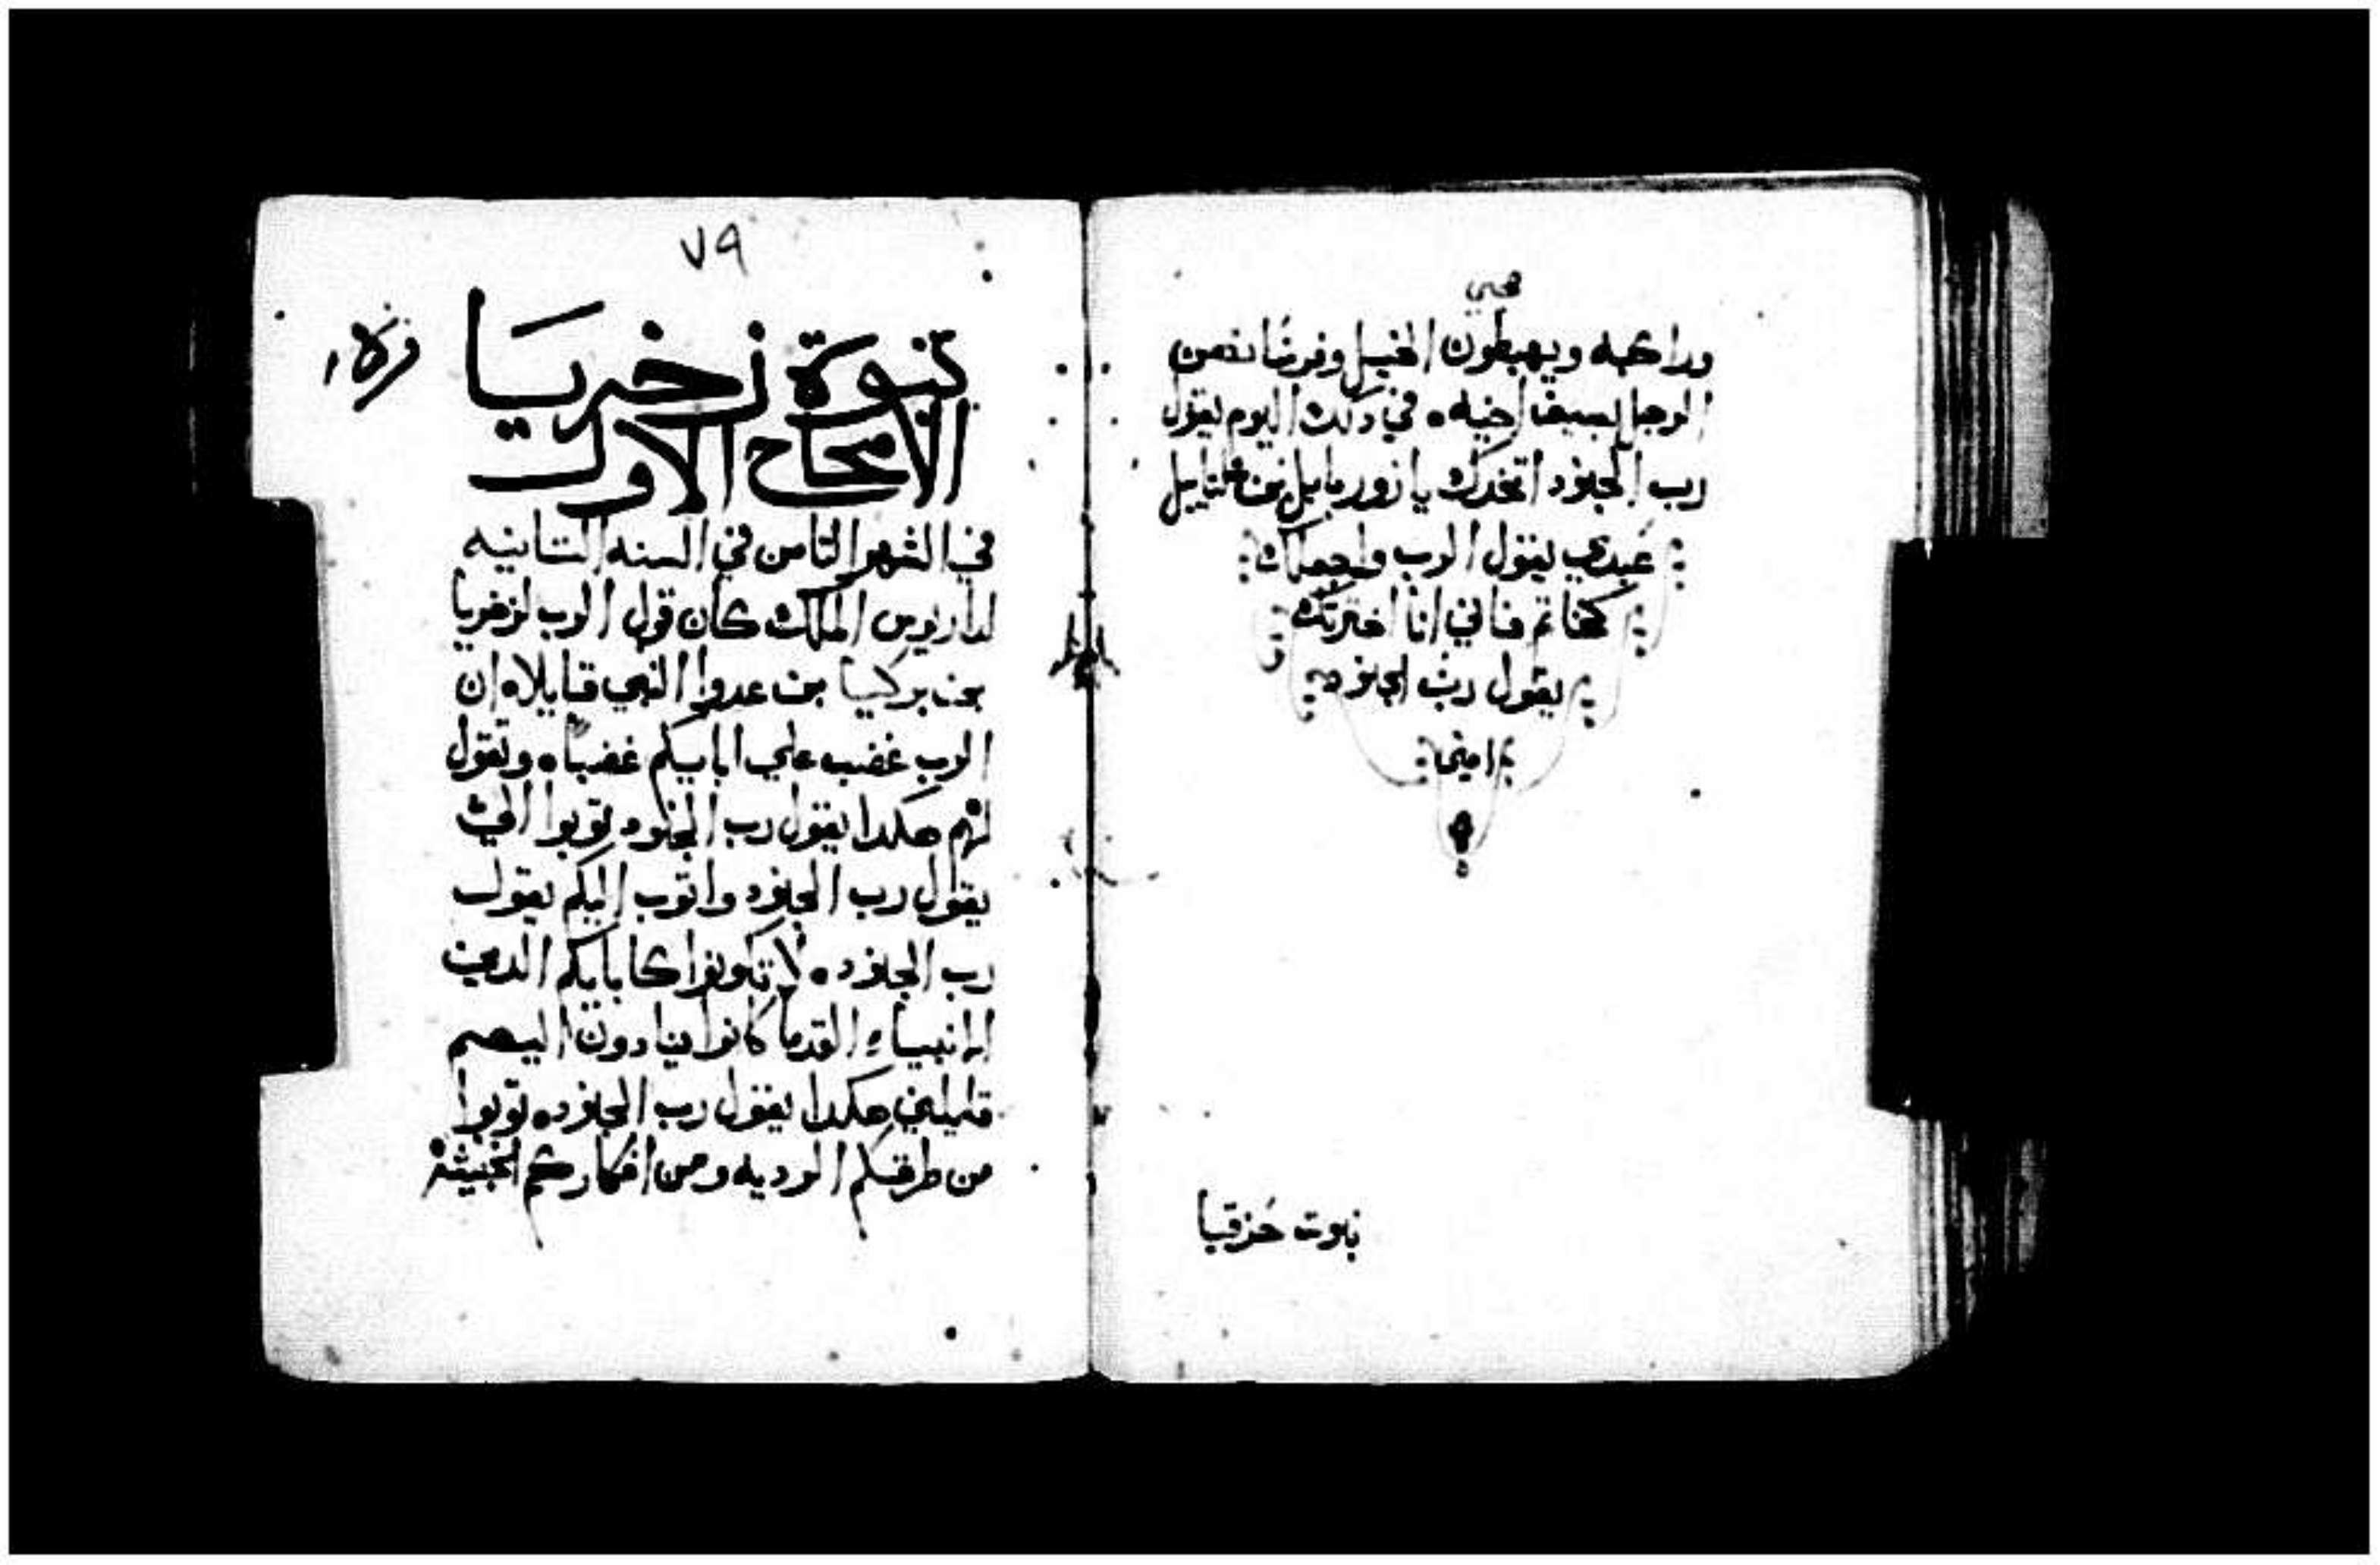 حجي
وراكبه ويهبطون الخيل وفرسانه من
الرجل بسيف اخيه ٥ في دلك اليوم يقول
رب الجنود اتخدك يا زوربابل بن شلتاييل
عبدي يقول الرب واجعلك
كخاتم فاني انا اخترتك
يقول رب الجنود
امين
نبوت زخريا
٧٩
نبوة زخريا
الاصحاح الاول
في الشهر التامن في السنه التانيه
لداريوس الملك كان قول الرب لزخريا
بن بركيا بن عدوا النبي قايلا ٥ ان
الرب غضب علي ابايكم غضبا ٥ وتقول
لهم هكدا يقول رب الجنود توبوا الي
يقول رب الجنود واتوب اليكم يقول
رب الجنود ٥ لا تكونوا كابايكم الدين
الانبياء القدما كانوا ينادون اليهم
قايلين هكدا يقول رب الجنود ٥ توبوا
من طرقكم الرديه ومن افكاركم الخبيثة